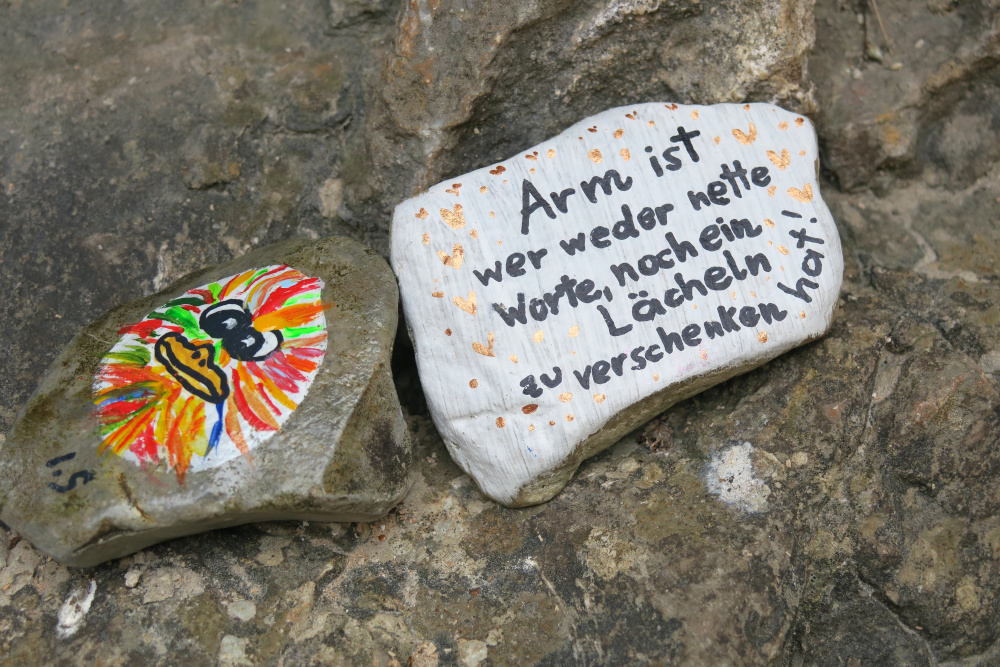 Arm ist
wer weder nette
Worte, noch ein
Lächeln
zu verschenken hat!